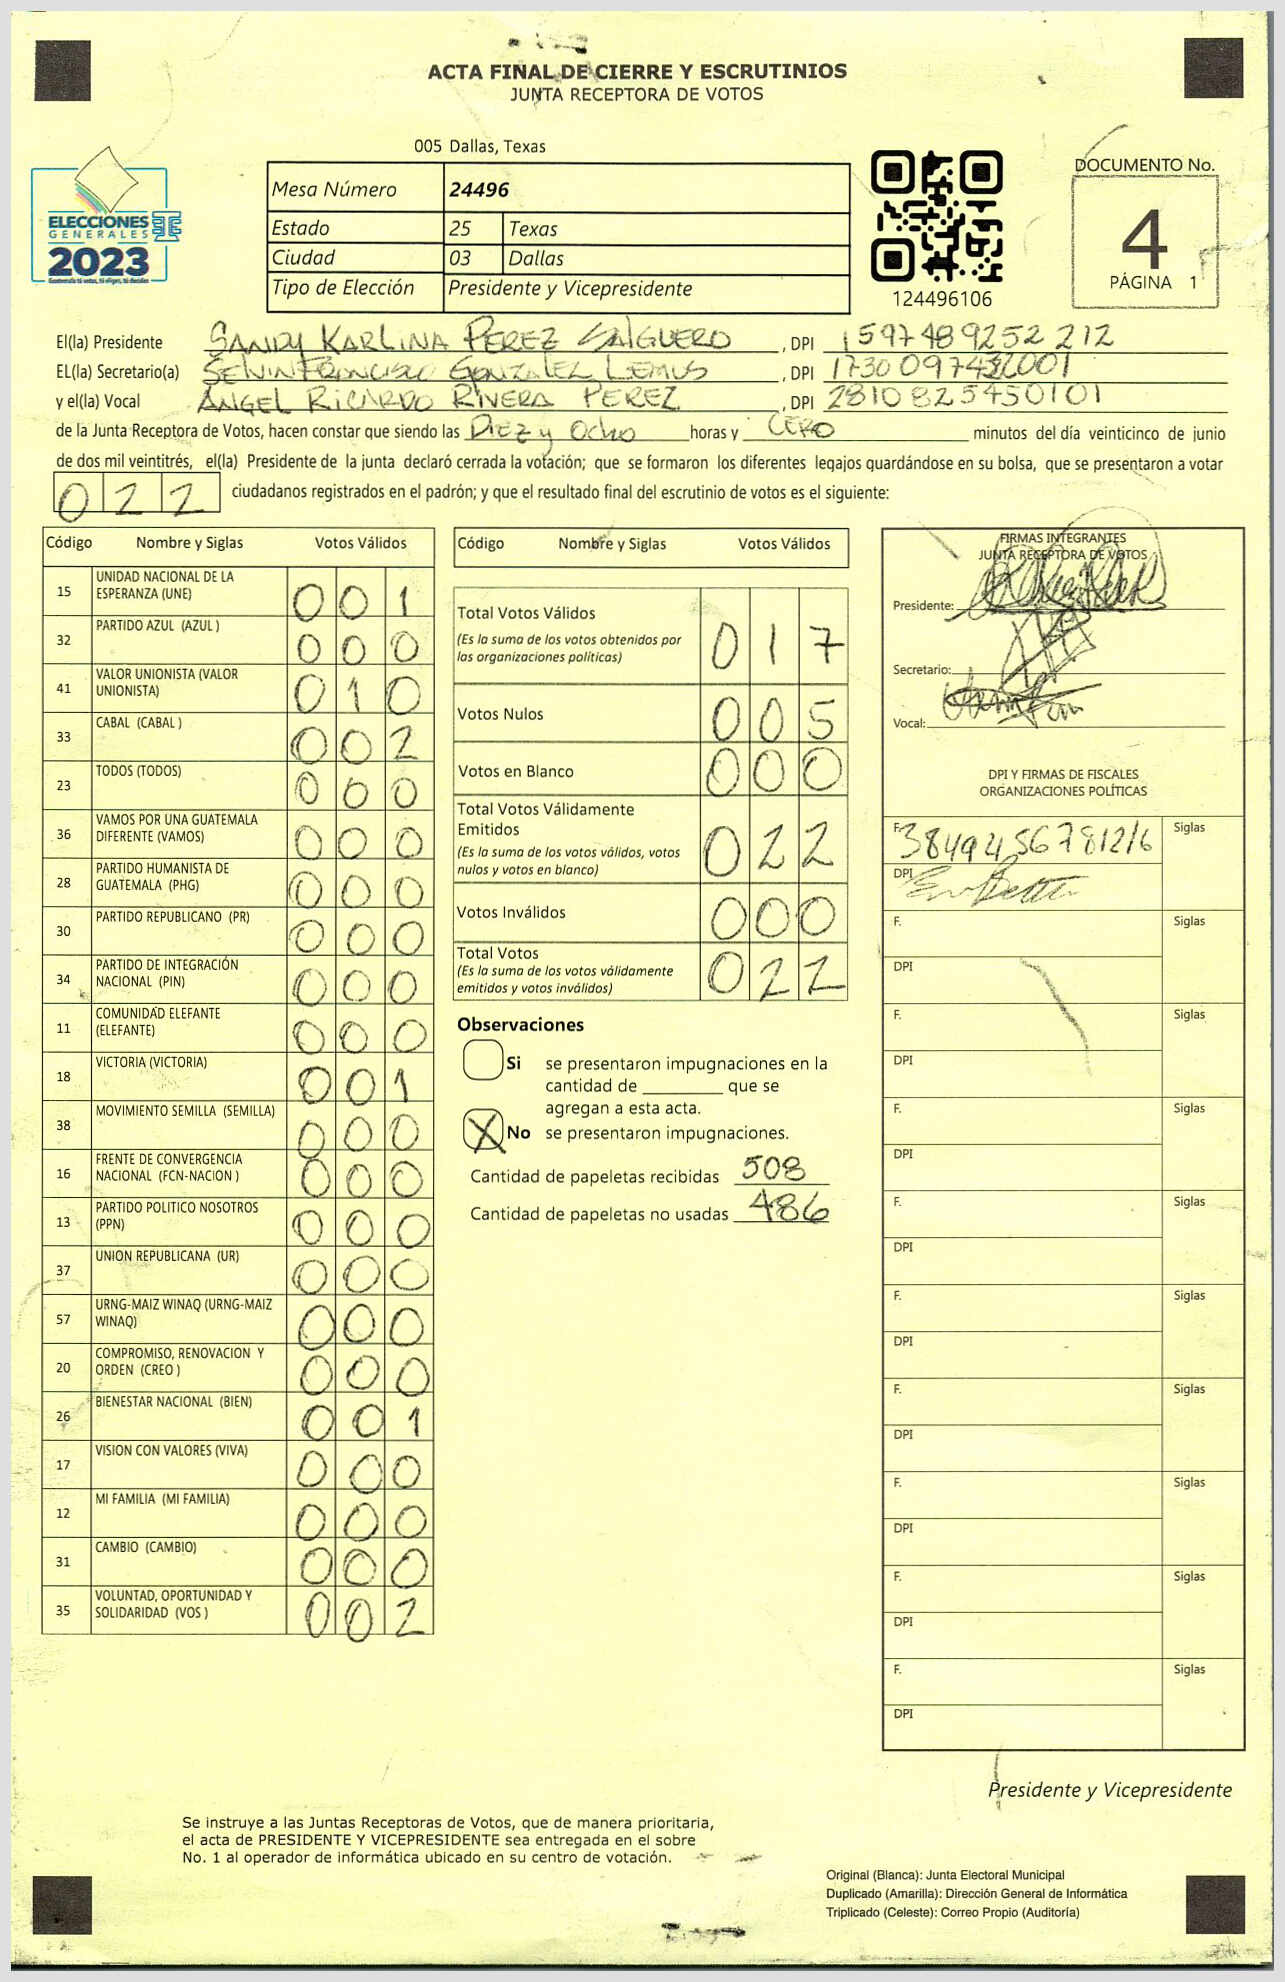 ACTA FINAL DE CIERRE Y ESCRUTINIOS
JUNTA RECEPTORA DE VOTOS
005 Dallas, Texas
ELECCIONES
GENERALES
2023
Guatemala tú votas, tú eliges, tú decides
Mesa Número 24496
Estado 25 Texas
Ciudad 03 Dallas
Tipo de Elección Presidente y Vicepresidente
124496106
DOCUMENTO No.
4
PÁGINA 1
El(la) Presidente SANDY KARLINA PEREZ SALGUERO, DPI 1597489252212
EL(la) Secretario(a) SELVIN FRANCISCO GONZALEZ LEMUS, DPI
y el(la) Vocal ANGEL RICARDO RIVERA PEREZ, DPI 2810825450101
de la Junta Receptora de Votos, hacen constar que siendo las Diez y Ocho horas y CERO minutos del día veinticinco de junio
de dos mil veintitrés, el(la) Presidente de la junta declaró cerrada la votación; que se formaron los diferentes legajos guardándose en su bolsa, que se presentaron a votar
022 ciudadanos registrados en el padrón; y que el resultado final del escrutinio de votos es el siguiente:
Código Nombre y Siglas Votos Válidos
15 UNIDAD NACIONAL DE LA ESPERANZA (UNE) 001
32 PARTIDO AZUL (AZUL ) 000
41 VALOR UNIONISTA (VALOR UNIONISTA) 010
33 CABAL (CABAL ) 002
23 TODOS (TODOS) 000
36 VAMOS POR UNA GUATEMALA DIFERENTE (VAMOS) 000
28 PARTIDO HUMANISTA DE GUATEMALA (PHG) 000
30 PARTIDO REPUBLICANO (PR) 000
34 PARTIDO DE INTEGRACIÓN NACIONAL (PIN) 000
11 COMUNIDAD ELEFANTE (ELEFANTE) 000
18 VICTORIA (VICTORIA) 001
38 MOVIMIENTO SEMILLA (SEMILLA) 000
16 FRENTE DE CONVERGENCIA NACIONAL (FCN-NACION ) 000
13 PARTIDO POLITICO NOSOTROS (PPN) 000
37 UNION REPUBLICANA (UR) 000
57 URNG-MAIZ WINAQ (URNG-MAIZ WINAQ) 000
20 COMPROMISO, RENOVACION Y ORDEN (CREO ) 000
26 BIENESTAR NACIONAL (BIEN) 001
17 VISION CON VALORES (VIVA) 000
12 MI FAMILIA (MI FAMILIA) 000
31 CAMBIO (CAMBIO) 000
35 VOLUNTAD, OPORTUNIDAD Y SOLIDARIDAD (VOS ) 002
Código Nombre y Siglas Votos Válidos
Total Votos Válidos 017
(Es la suma de los votos obtenidos por
las organizaciones políticas)
Votos Nulos 005
Votos en Blanco 000
Total Votos Válidamente
Emitidos 022
(Es la suma de los votos válidos, votos
nulos y votos en blanco)
Votos Inválidos 000
Total Votos 022
(Es la suma de los votos válidamente
emitidos y votos inválidos)
Observaciones
Si se presentaron impugnaciones en la
cantidad de ________ que se
agregan a esta acta.
X No se presentaron impugnaciones.
Cantidad de papeletas recibidas 508
Cantidad de papeletas no usadas 486
FIRMAS INTEGRANTES
JUNTA RECEPTORA DE VOTOS
Presidente:
Secretario:
Vocal:
DPI Y FIRMAS DE FISCALES
ORGANIZACIONES POLÍTICAS
F. Siglas
DPI
F. Siglas
DPI
F. Siglas
DPI
F. Siglas
DPI
F. Siglas
DPI
F. Siglas
DPI
F. Siglas
DPI
F. Siglas
DPI
F. Siglas
DPI
F. Siglas
DPI
Presidente y Vicepresidente
Se instruye a las Juntas Receptoras de Votos, que de manera prioritaria,
el acta de PRESIDENTE Y VICEPRESIDENTE sea entregada en el sobre
No. 1 al operador de informática ubicado en su centro de votación.
Original (Blanca): Junta Electoral Municipal
Duplicado (Amarilla): Dirección General de Informática
Triplicado (Celeste): Correo Propio (Auditoría)